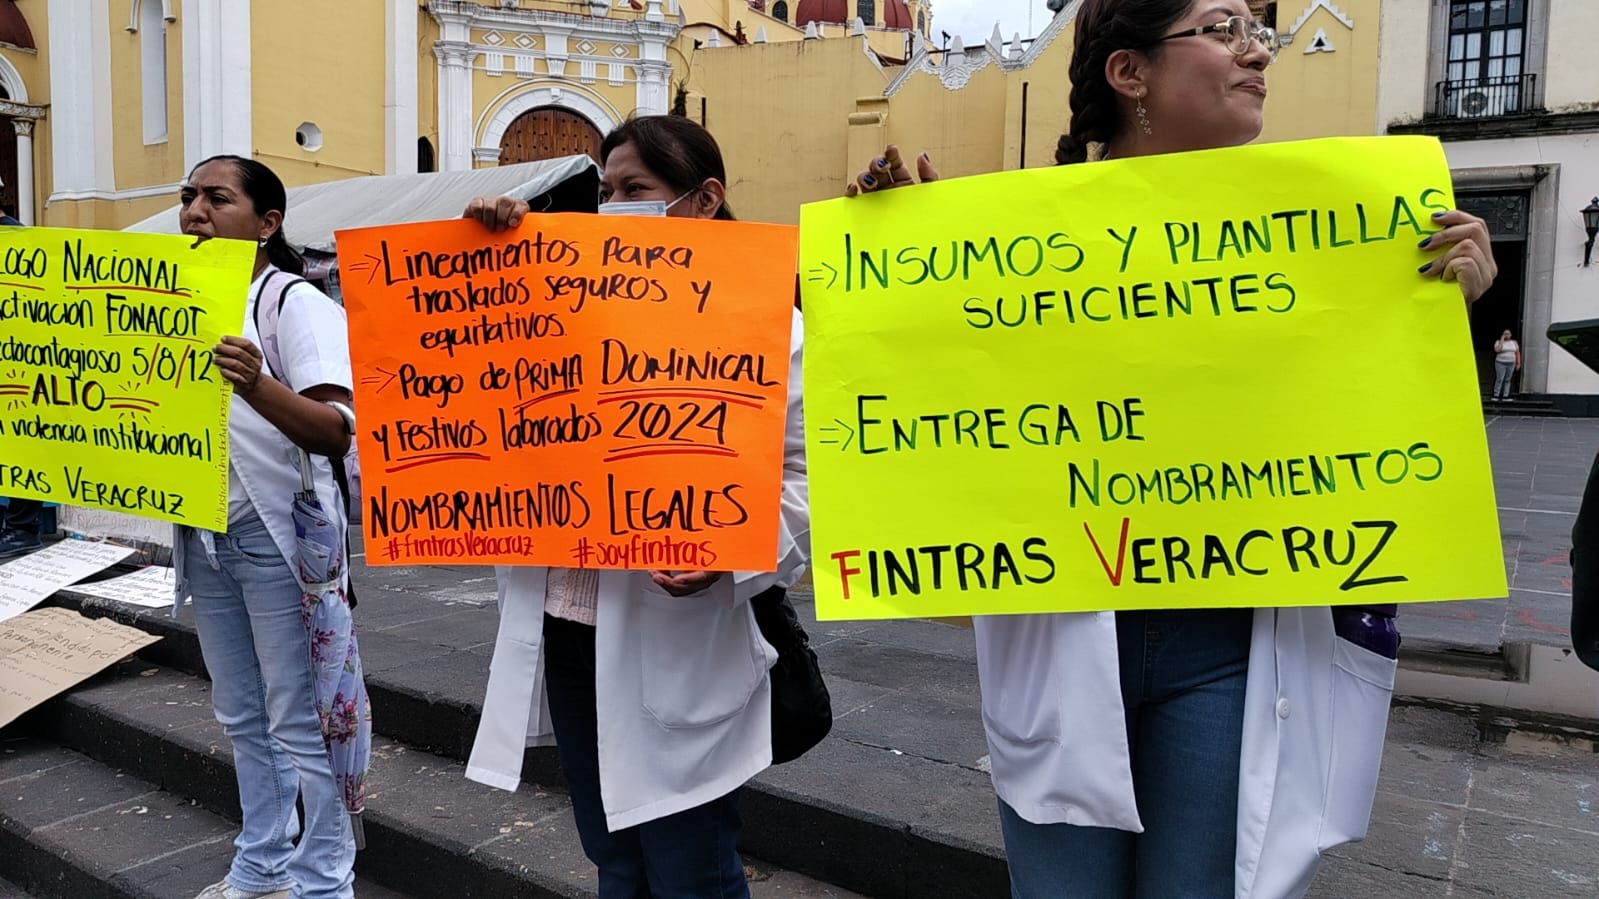 LOGO NACIONAL.
ctivación FONACOT
ectocontagioso 5/8/12
ALTO
a violencia institucional
TRAS VERACRUZ
=>Lineamientos para
traslados seguros y
equitativos
=>Pago de PRIMA DOMINICAL
y Festivos laborados 2024
NOMBRAMIENTOS LEGALES
#fintrasVeracruz #soyfintras
=>INSUMOS Y PLANTILLAS
SUFICIENTES
=>ENTREGA DE
NOMBRAMIENTOS
FINTRAS VERACRUZ